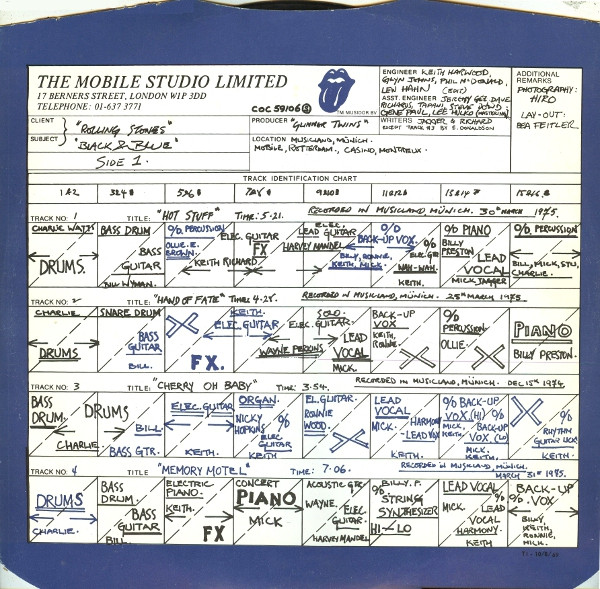 THE MOBILE STUDIO LIMITED
17 BERNERS STREET, LONDON W1P 3DD
TELEPHONE: 01-637 3771
COC 59106
TM MUSIDOR BV
ENGINEER KEITH HARWOOD,
GLYN JOHNS, PHIL McDONALD,
LEW HAHN (EDIT)
ASST. ENGINEER JEREMY GEE, DAVE
RICHARDS, TAPANI, STEVE DOWD,
GENE PAUL, LEE HULKO (MASTERING)
WRITERS JAGGER & RICHARD
EXCEPT TRACK No 3 BY E. DONALDSON
ADDITIONAL
REMARKS
PHOTOGRAPHY:
HIRO
LAY-OUT:
BEA FEITLER
CLIENT "ROLLING STONES"
PRODUCER "GLIMMER TWINS"
SUBJECT "BLACK & BLUE"
SIDE 1.
LOCATION MUSICLAND, MÜNICH.
MOBILE, ROTTERDAM., CASINO, MONTREUX.
TRACK IDENTIFICATION CHART
1 & 2 3 & 4 5 & 6 7 & 8 9 & 10 11 & 12 13 & 14 15 & 16
TRACK NO: 1 TITLE: "HOT STUFF" TIME: 5·21. RECORDED IN MUSICLAND, MÜNICH. 30th MARCH 1975.
CHARLIE WATTS
DRUMS.
BASS DRUM
BASS
GUITAR
BILL WYMAN.
% PERCUSSION
OLLIE. E.
BROWN.
KEITH RICHARD
ELEC. GUITAR
FX
ELEC.
LEAD GUITAR
HARVEY MANDEL
BILLY, RONNIE,
KEITH, MICK.
O/D
BACK-UP VOX.
ELEC. GTR
WAH-WAH.
KEITH.
% PIANO
BILLY
PRESTON
LEAD
VOCAL
MICK JAGGER
% PERCUSSION
BILL, MICK, STU,
CHARLIE.
TRACK NO: 2 TITLE: "HAND OF FATE" TIME: 4·28. RECORDED IN MUSICLAND, MÜNICH. 25th MARCH 1975
CHARLIE
DRUMS
SNARE DRUM
BASS
GUITAR
BILL.
FX.
KEITH.
ELEC. GUITAR
WAYNE PERKINS
SOLO.
ELEC. GUITAR.
LEAD
VOCAL
MICK.
BACK-UP
VOX
KEITH,
RONNIE.
%
PERCUSSION
OLLIE.
PIANO
BILLY PRESTON.
TRACK NO: 3 TITLE: "CHERRY OH BABY" TIME: 3·54. RECORDED IN MUSICLAND, MÜNICH. DEC. 15th 1974.
BASS
DRUM.
CHARLIE.
DRUMS
BILL.
BASS GTR.
ELEC. GUITAR
KEITH.
ORGAN.
NICKY
HOPKINS
%
ELEC
GUITAR
KEITH
EL. GUITAR.
RONNIE
WOOD.
LEAD
VOCAL
MICK.
HARMONY
-LEAD VOX
KEITH.
% BACK-UP
VOX. (HI) %
MICK, KEITH. BACK-UP
VOX. (LO)
MICK, KEITH.
%
RHYTHM
GUITAR LICK
KEITH
TRACK NO: 4 TITLE: "MEMORY MOTEL" TIME: 7·06. RECORDED IN MUSICLAND, MÜNICH.
MARCH 31st 1975.
DRUMS
CHARLIE.
BASS
DRUM.
BASS
GUITAR
BILL.
ELECTRIC
PIANO.
KEITH.
FX
CONCERT
PIANO
MICK
ACOUSTIC GTR
WAYNE.
ELEC.
GUITAR.
HARVEY MANDEL
BILLY. P.
%
STRING
SYNTHESIZER
HI-LO
LEAD VOCAL
MICK.
LEAD
VOCAL
HARMONY.
KEITH
BACK-UP
% VOX
BILLY,
KEITH,
RONNIE,
MICK.